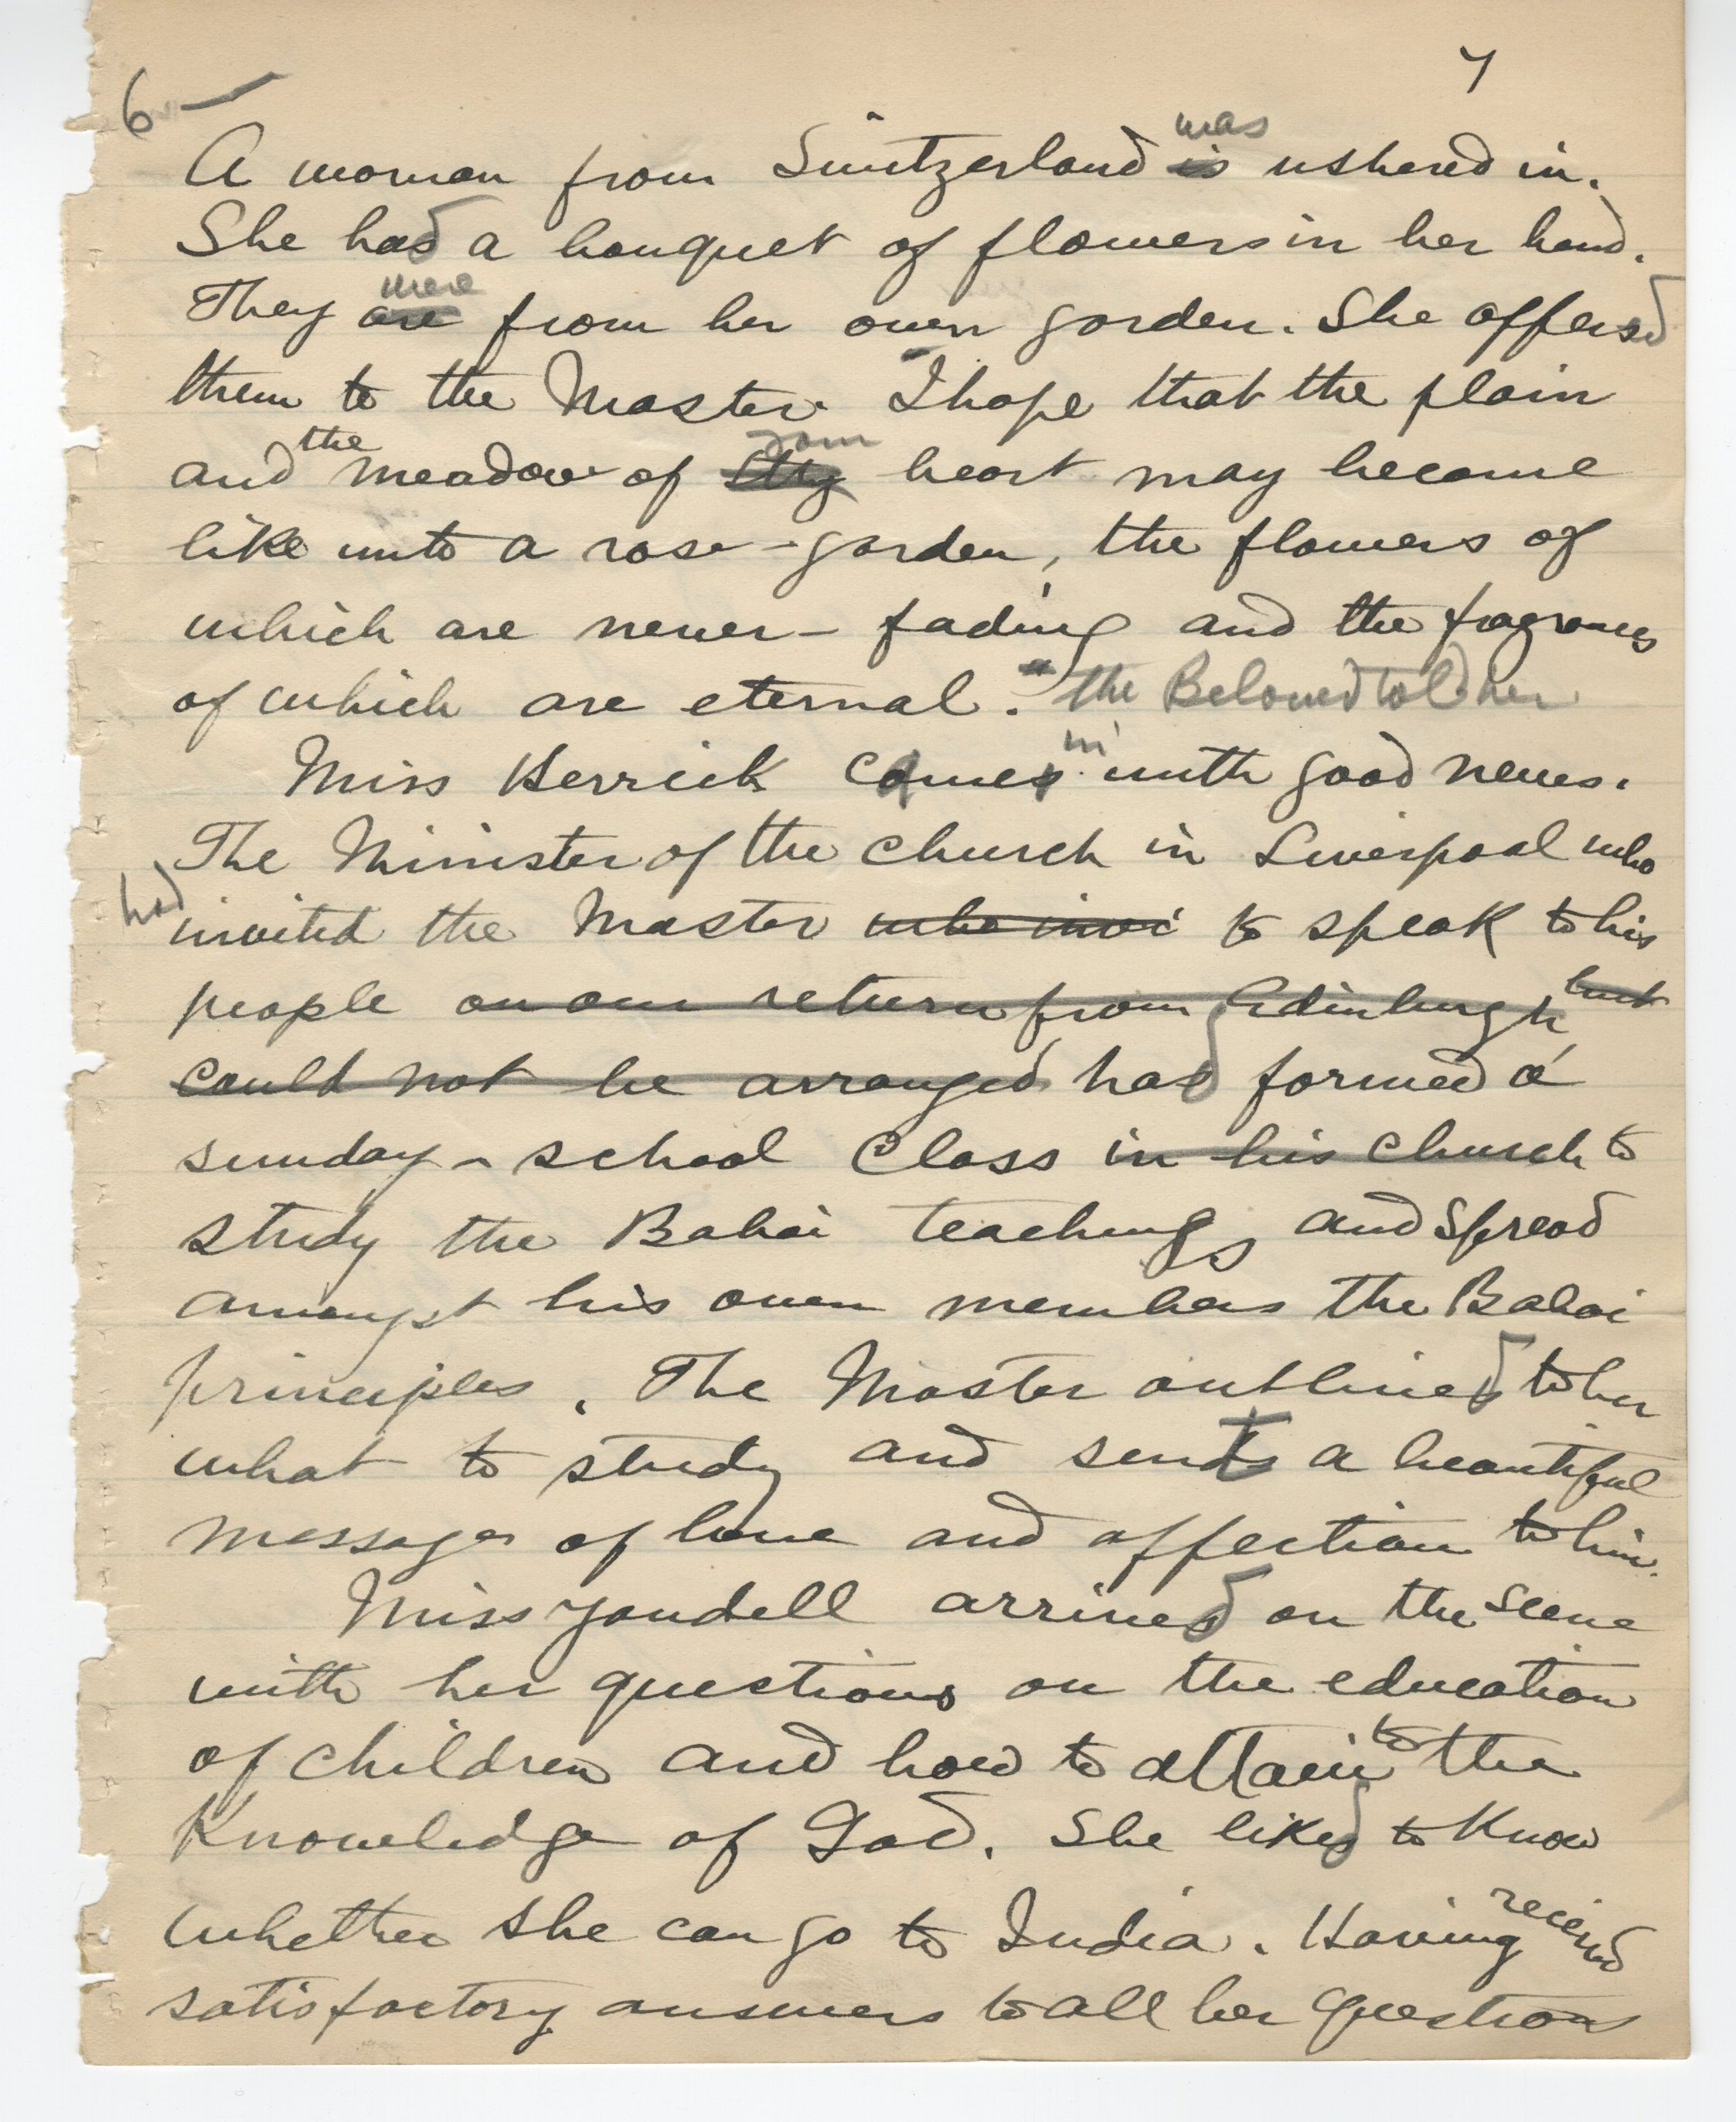 7
6 —
A woman from Switzerland was is ushered in.
She had a bouquet of flowers in her hand.
They were are from her own garden. She offered
them to the Master. "I hope that the plain
and the meadow of your thy heart may become
like unto a rose-garden, the flowers of
which are never-fading and the fragrances
of which are eternal." the Beloved told her
Miss Herrick came in with good news.
The Minister of the church in Liverpool who
had invited the Master who invi to speak to his
people on our return from Edinburgh but
could not be arranged had formed a
sunday-school Class in his church to
study the Bahai teachings and spread
amongst his own members the Bahai
principles. The Master outlined to her
what to study and sent a beautiful
message of love and affection to him.
Miss Yandell arrived on the scene
with her questions on the education
of children and how to attain to the
Knowledge of God. She liked to Know
whether she can go to India. Having received
satisfactory answers to all her questions